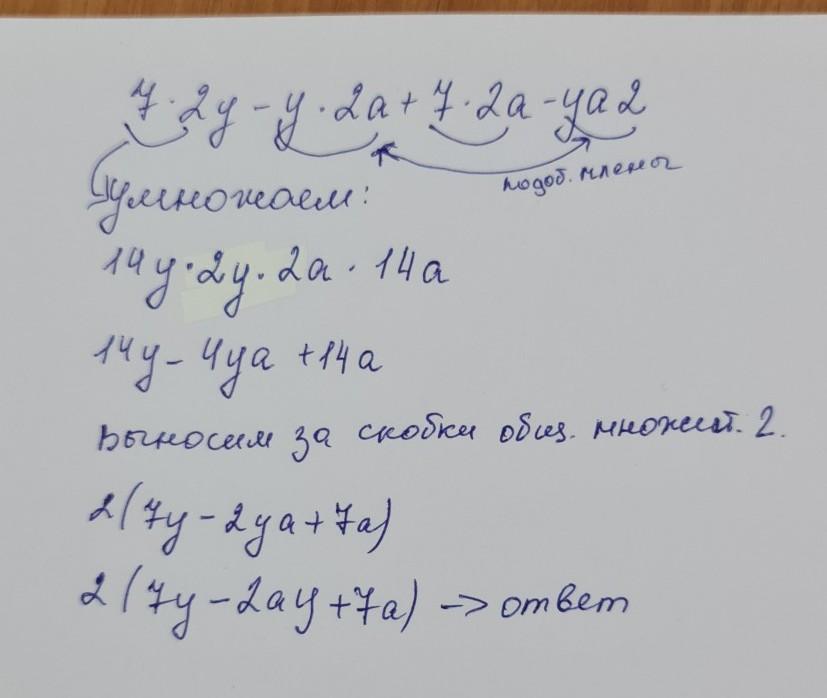 7·2y - y·2a + 7·2a - ya2
подоб. члены
умножаем:
14y·2y·2a·14a
14y - 4ya + 14a
выносим за скобки общ. множит. 2.
2(7y - 2ya + 7a)
2(7y - 2ay + 7a) -> ответ